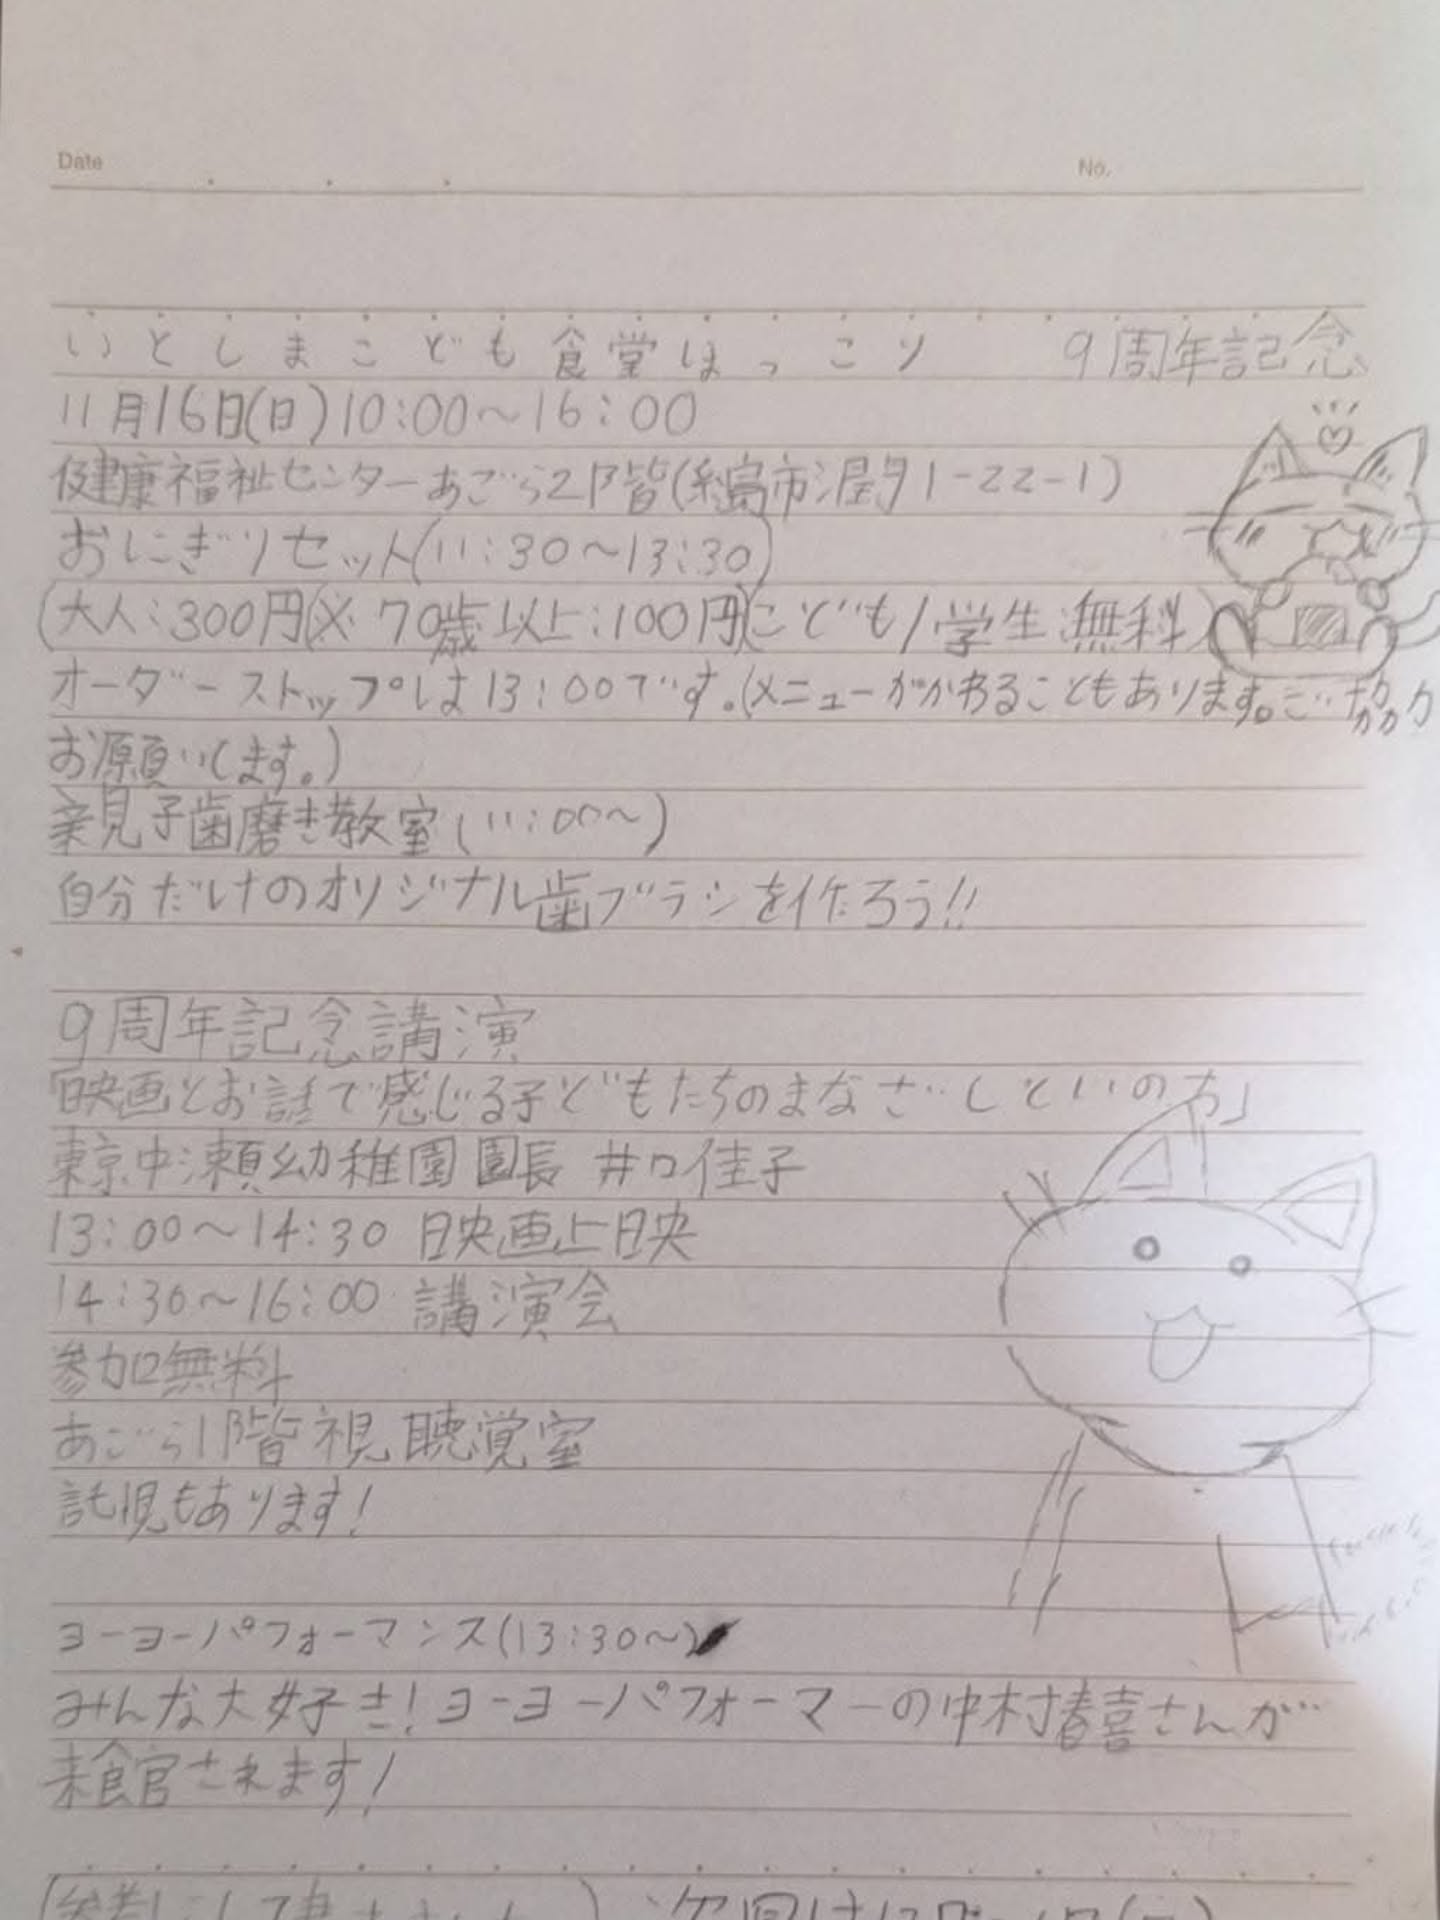 Date
No.
いとしまこども食堂ほっこり 9周年記念
11月16日(日)10:00～16:00
健康福祉センターあごら2階(糸島市潤1-22-1)
おにぎりセット(11:30～13:30)
(大人:300円(※70歳以上:100円)こども/学生:無料)
オーダーストップは13:00です。(メニューがかわることもあります。ご協力
お願いします。)
親子歯磨き教室(11:00～)
自分だけのオリジナル歯ブラシを作ろう!!
9周年記念講演
「映画とお話で感じる子どもたちのまなざしといのち」
東京中瀬幼稚園園長 井口佳子
13:00～14:30 映画上映
14:30～16:00 講演会
参加無料
あごら1階視聴覚室
託児もあります!
ヨーヨーパフォーマンス(13:30～)
みんな大好き!ヨーヨーパフォーマーの中村春喜さんが
来館されます!
次回は12月